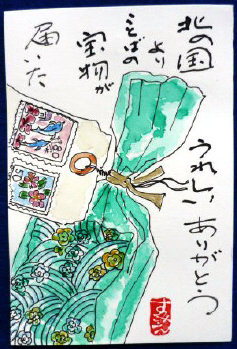 北の国
より
ことばの
宝物が
届いた
うれしい ありがとう